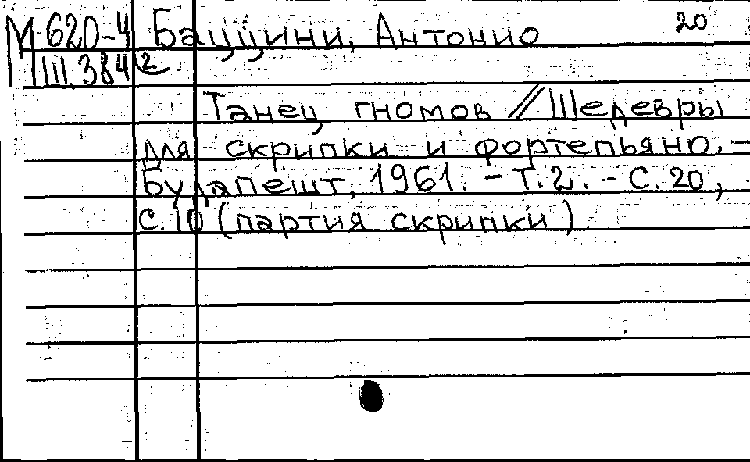 М 620-4 Баццини, Антонио 20
Ш 384/2
Танец гномов // Шедевры
для скрипки и фортепьяно. -
Будапешт, 1961. - Т. 2. - С. 20,
с. 10 (партия скрипки)